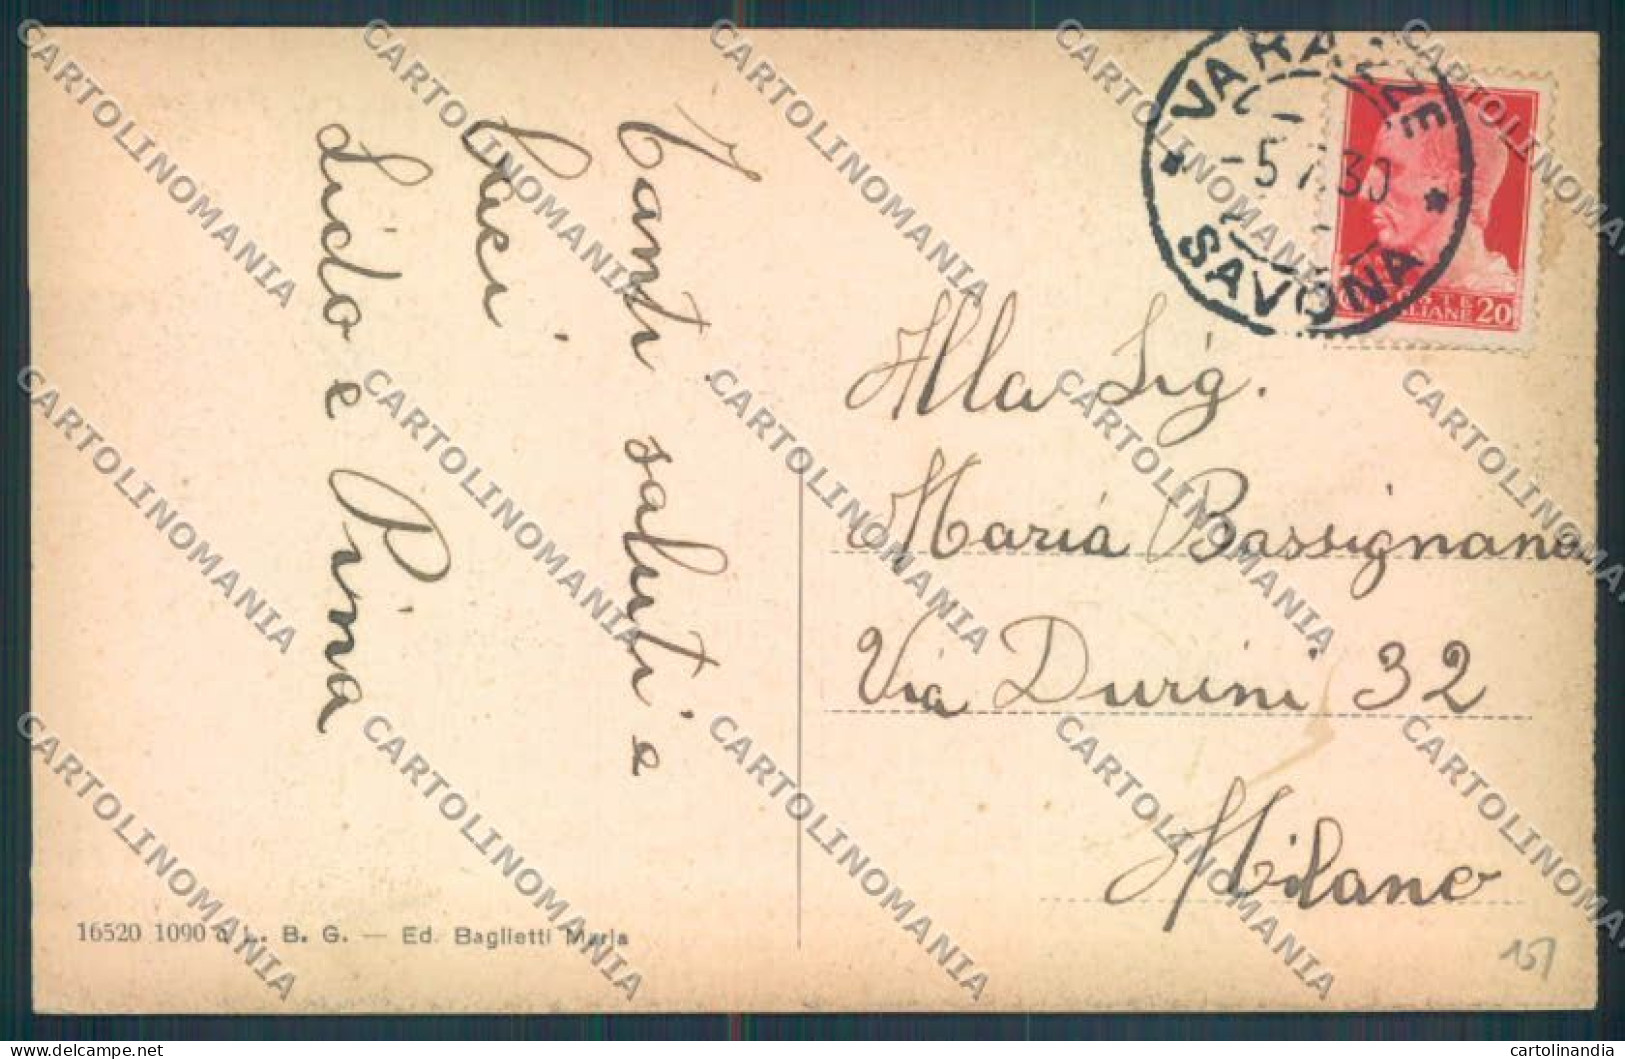 Tanti saluti e
baci
Lido e Pina
VARAZZE
-5.7.30
SAVONA
20
Alla Sig.
Maria Bassignana
Via Durini 32
Milano
16520 1090 d L. B. G. — Ed. Baglietti Maria
151
CARTOLINOMANIA
delcampe.net
cartolinandia